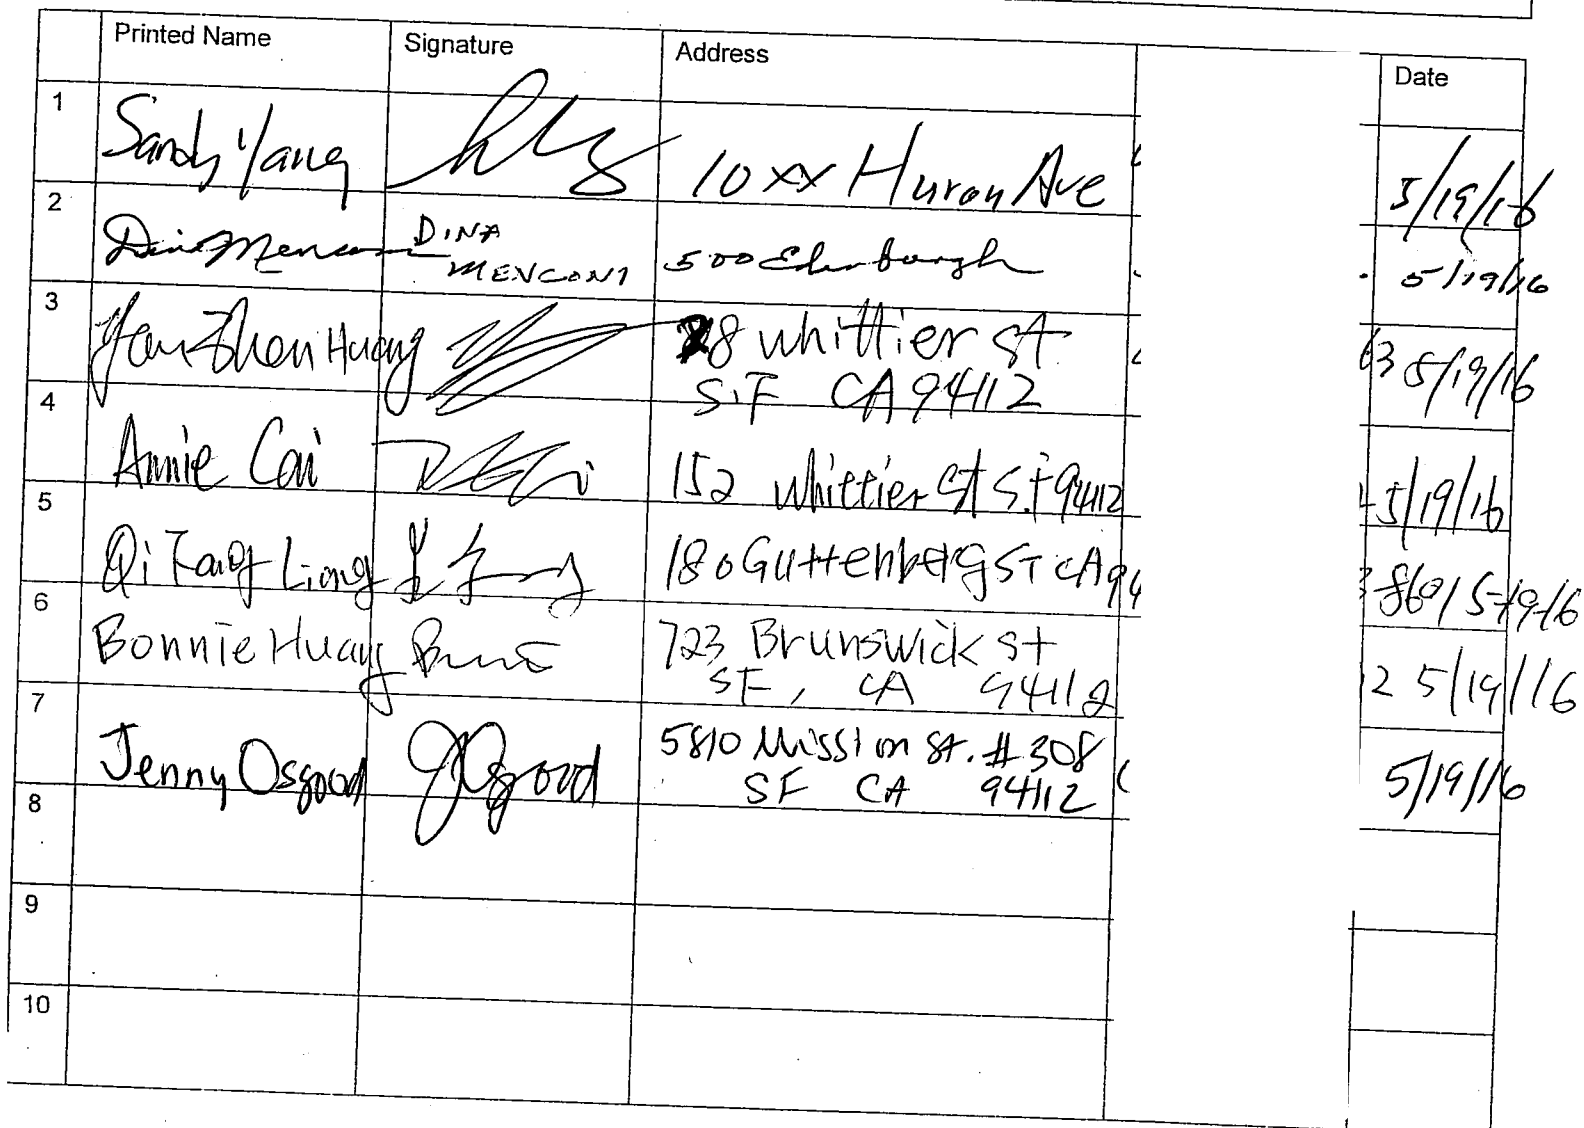 Printed Name Signature Address Date
1 Sandy Yang 10xx Huron Ave 5/19/16
2 Dina Menconi DINA MENCONI 500 Edinburgh 5/19/16
3 Yan Zhen Huang 28 Whittier St 63 5/19/16
S.F CA 94112
4 Annie Cai 152 Whittier St S.F 94112 5/19/16
5 Qi Fang Liang 180 Guttenberg ST CA 94 5-19-16
6 Bonnie Huang 723 Brunswick st 2 5/19/16
SF, CA 94112
7 Jenny Osgood JOsgood 5810 Mission St. #308 5/19/16
SF CA 94112
8
9
10